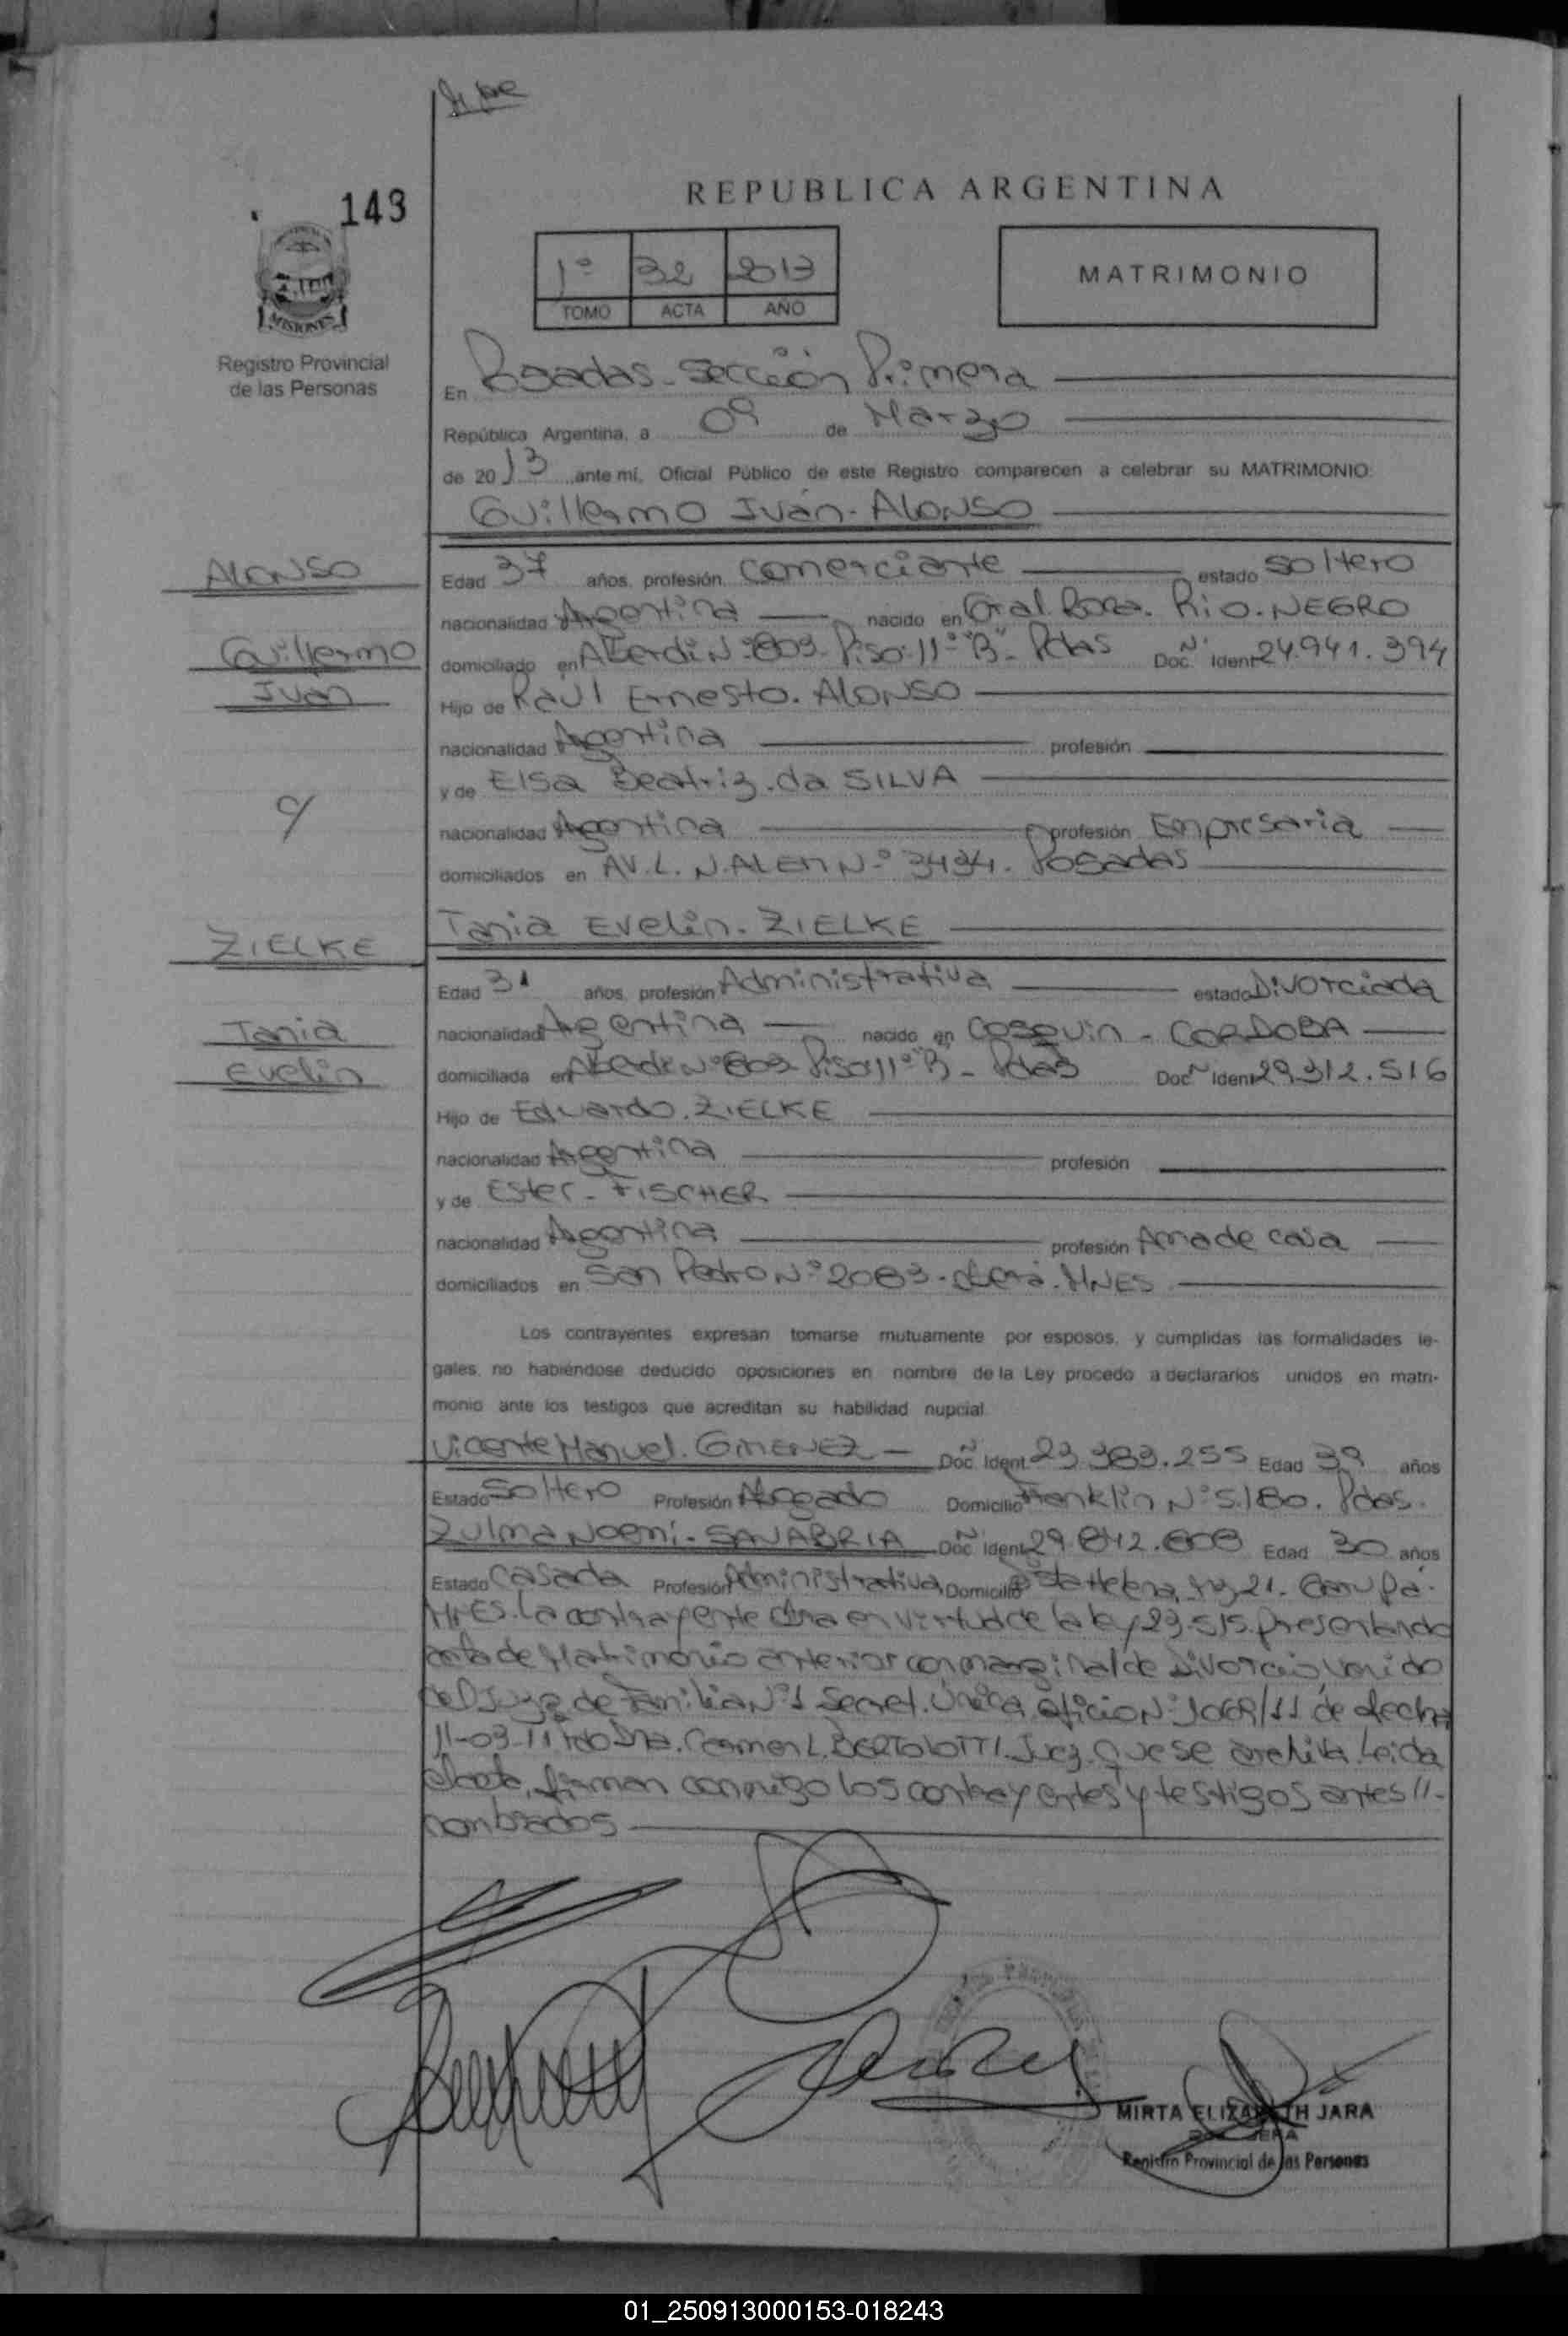 143
REPUBLICA ARGENTINA
MISIONES
Registro Provincial
de las Personas
1º 32 2013
TOMO ACTA AÑO
MATRIMONIO
En Posadas - Sección Primera
República Argentina, a 09 de Marzo
de 2013 ante mí, Oficial Público de este Registro comparecen a celebrar su MATRIMONIO:
Guillermo Iván - ALONSO
ALONSO
Guillermo
Iván
Edad 37 años, profesión Comerciante estado Soltero
nacionalidad Argentina nacido en Gral. Roca. Rio. NEGRO
domiciliado en Alberdi Nº 803 - Piso 11º "B" - Pdas Doc. Nº Ident 24.941.394
Hijo de Raúl Ernesto. ALONSO
nacionalidad Argentina profesión
y de Elsa Beatriz. da SILVA
nacionalidad Argentina profesión Empresaria
domiciliados en AV. L. N. ALEM Nº 3434. Posadas
c/
Tania Evelin. ZIELKE
ZIELKE
Tania
Evelin
Edad 31 años, profesión Administrativa estado Divorciada
nacionalidad Argentina nacido en Cosquin - CORDOBA
domiciliada en Alberdi Nº 803 Piso 11º "B" - Pdas Doc. Nº Ident 29.312.516
Hijo de Eduardo. ZIELKE
nacionalidad Argentina profesión
y de Ester - FISCHER
nacionalidad Argentina profesión Ama de casa
domiciliados en San Pedro Nº 2083 - Oberá. MNES
Los contrayentes expresan tomarse mutuamente por esposos, y cumplidas las formalidades le-
gales, no habiéndose deducido oposiciones en nombre de la Ley procedo a declararlos unidos en matri-
monio ante los testigos que acreditan su habilidad nupcial.
Vicente Manuel. GIMENEZ - Doc. Nº Ident. 23.383.255 Edad 39 años
Estado Soltero Profesión Abogado Domicilio Franklin Nº 5.180. Pdas.
Zulma Noemi - SANABRIA Doc. Nº Ident 29.842.808 Edad 30 años
Estado Casada Profesión Administrativa Domicilio Sta Helena 21 - Garupá.
MNES. La contrayente en virtud de la ley 23.515. Presentando
acta de Matrimonio anterior con marginal de Divorcio venido
del Juzg. de Familia Nº 1 Secret. Única Oficio Nº 1069/11 de fecha
11-03-11 fdo Dra. Carmen L. BERTOLOTTI. Juez. Que se archiva. Leída
el acta, firman conmigo los contrayentes y testigos antes //-
nombrados
MIRTA ELIZABETH JARA
Registro Provincial de las Personas
01_250913000153-018243